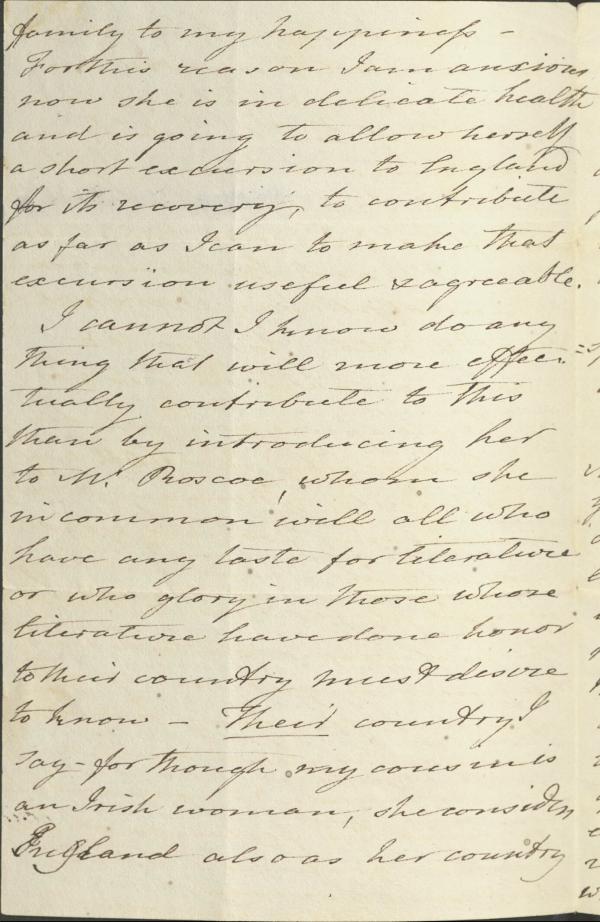 family to my happiness -
For this reason I am anxious
now she is in delicate health
and is going to allow herself
a short excursion to England
for its recovery, to contribute
as far as I can to make that
excursion useful & agreeable.
I cannot I know do any
thing that will more effec=
tually contribute to this
than by introducing her
to Mr. Roscoe, whom she
in common with all who
have any taste for literature
or who glory in those whose
literature have done honor
to their country must desire
to know - Their country I
say - for though my cousin is
an Irish woman, she considers
England also as her country